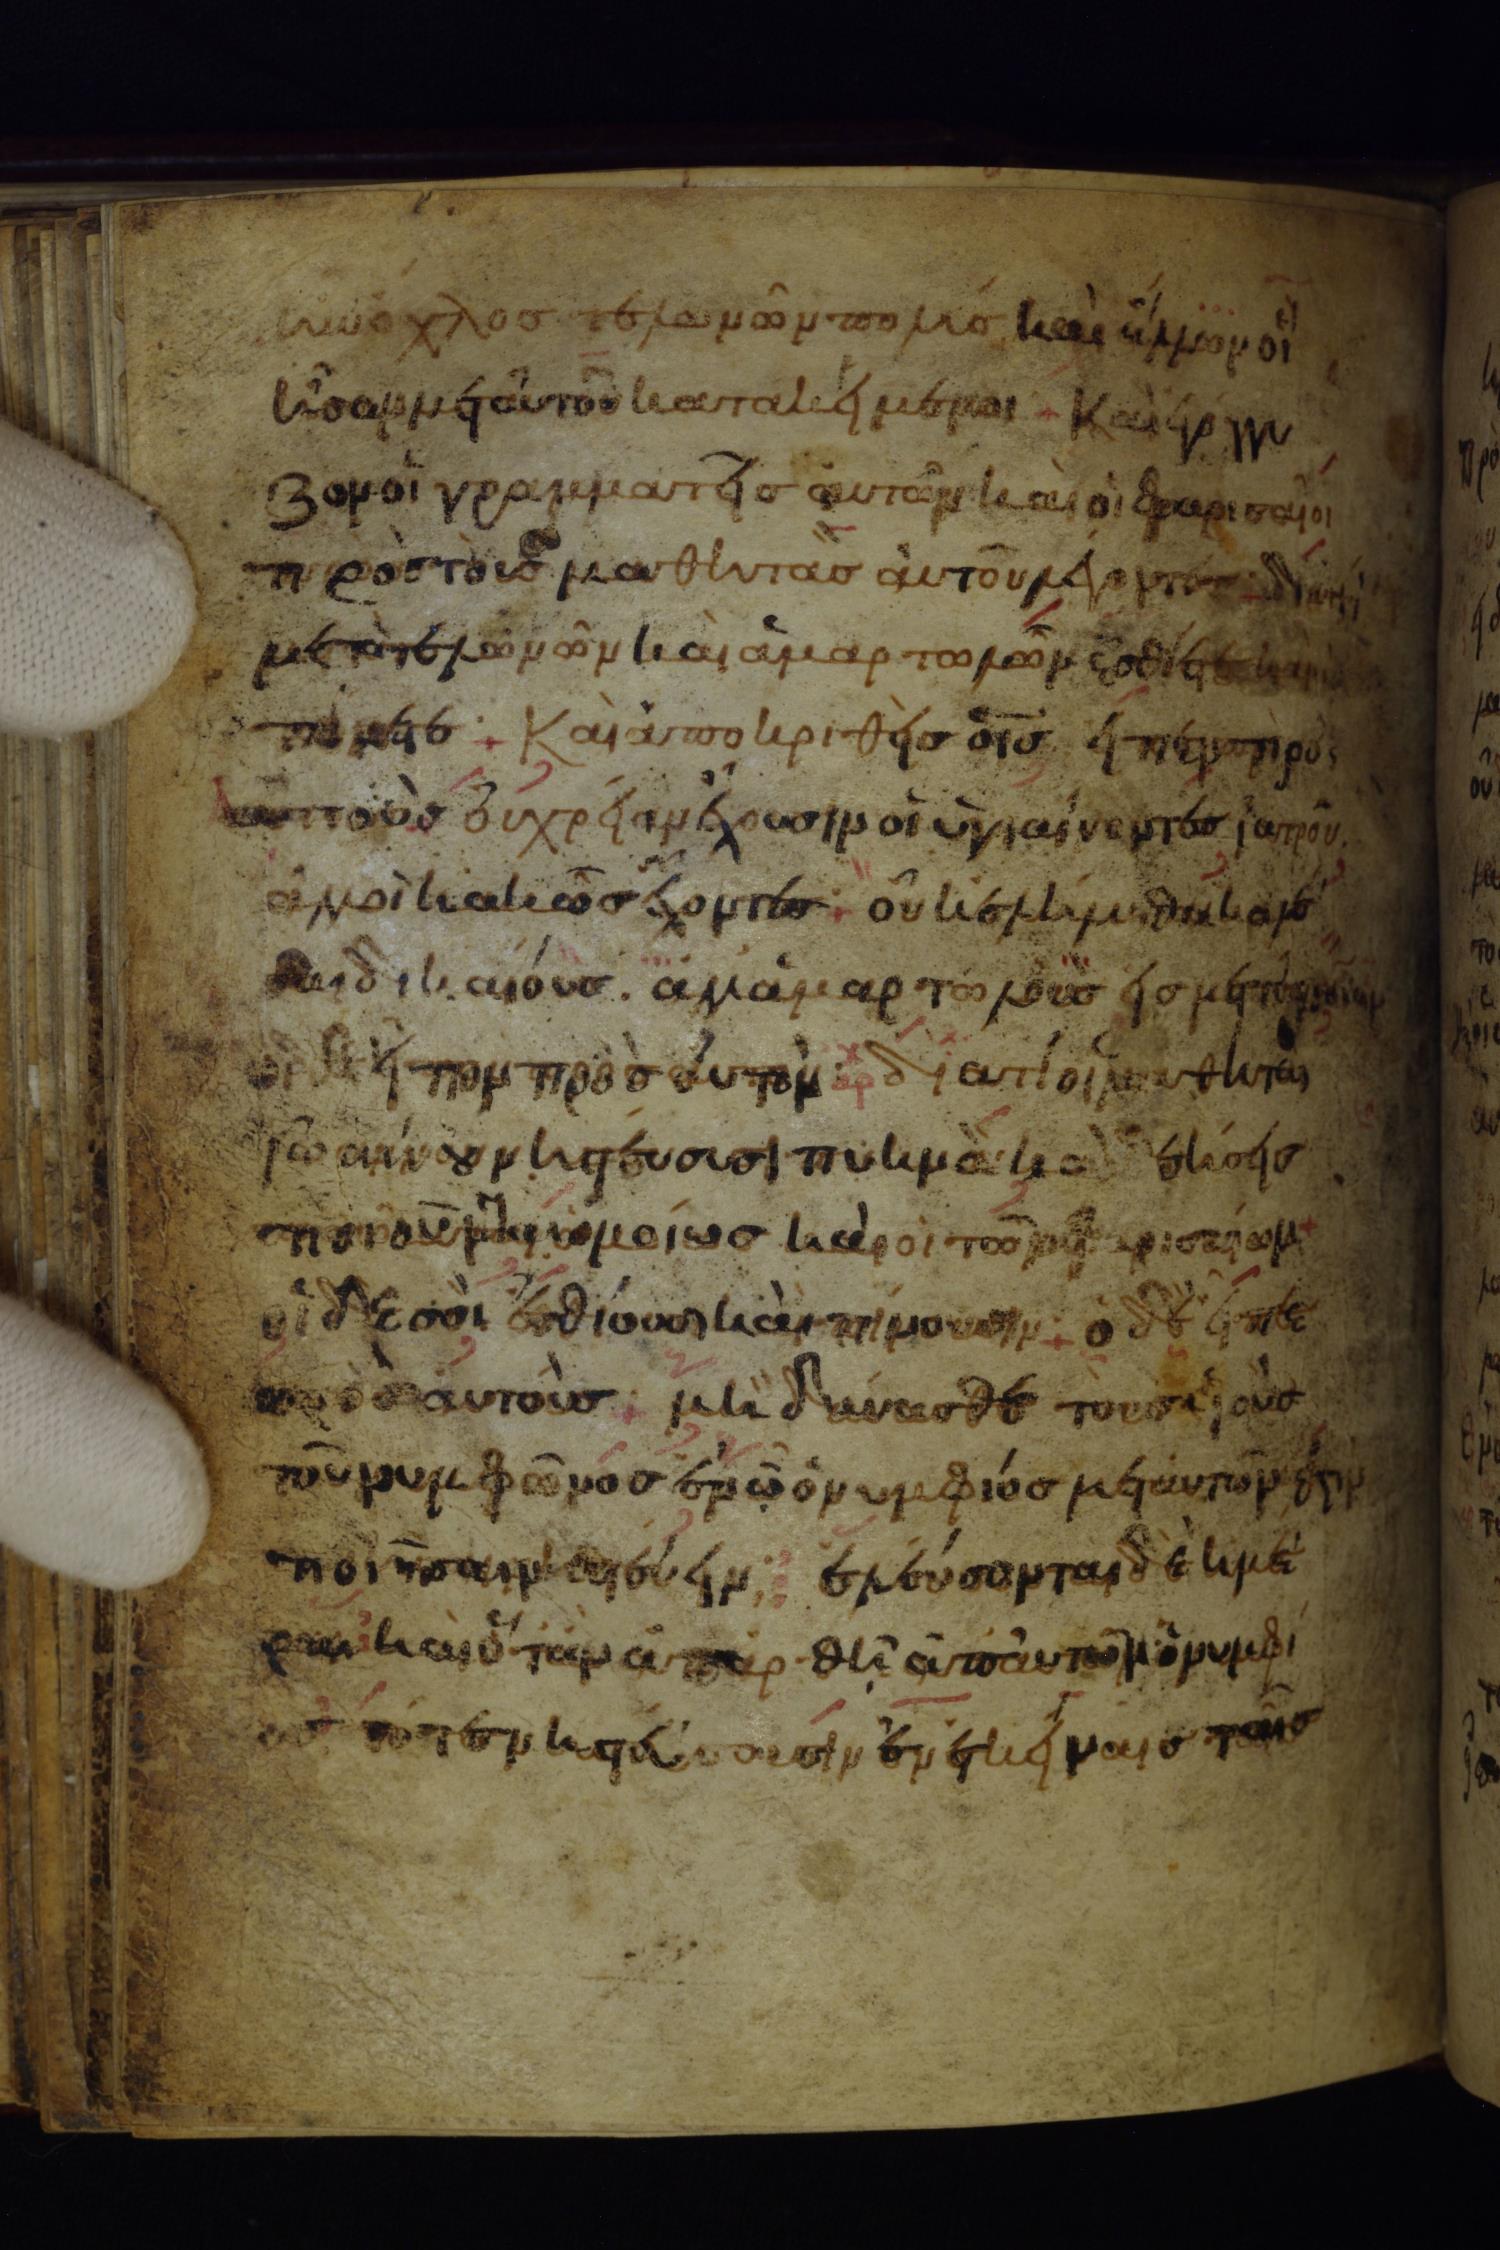 ην ὄχλος τελωνῶν πολὺς καὶ ἄλλων οἳ
ἦσαν μετ αὐτοῦ κατακείμενοι + Καὶ ἐγόγγυ
ζον οἱ γραμματεῖς αὐτῶν καὶ οἱ φαρισαῖοι
πρὸς τοὺς μαθητὰς αὐτοῦ λέγοντες + διατί
μετὰ τελωνῶν καὶ ἁμαρτωλῶν ἐσθίετε καὶ
πίνετε + Καὶ ἀποκριθεὶς ὁ ις εἶπεν πρὸς
αὐτοὺς οὐ χρείαν ἔχουσιν οἱ ὑγιαίνοντες ἰατροῦ.
ἀλλ οἱ κακῶς ἔχοντες + οὐκ ἐλήλυθα καλέ
σαι δικαίους. ἀλλ ἁμαρτωλοὺς εἰς μετάνοιαν
οἱ δὲ εἶπον πρὸς αὐτὸν αρχ διατί οἱ μαθηταὶ
ἰωάννου νηστεύουσι πυκνὰ καὶ δεήσεις
ποιοῦνται ὁμοίως καὶ οἱ τῶν φαρισαίων +
οἱ δὲ σοὶ ἐσθίουσι καὶ πίνουσιν + ὁ δὲ εἶπε
πρὸς αὐτοὺς + μὴ δύνασθε τοὺς υἱοὺς
τοῦ νυμφῶνος ἐν ᾧ ὁ νυμφίος μετ αὐτῶν ἐστιν
ποιῆσαι νηστεύειν + ἐλεύσονται δὲ ἡμέ
ραι καὶ ὅταν ἀπαρθῇ ἀπ αὐτῶν ὁ νυμφί
ος τότε νηστεύσουσιν ἐν ἐκείναις ταῖς